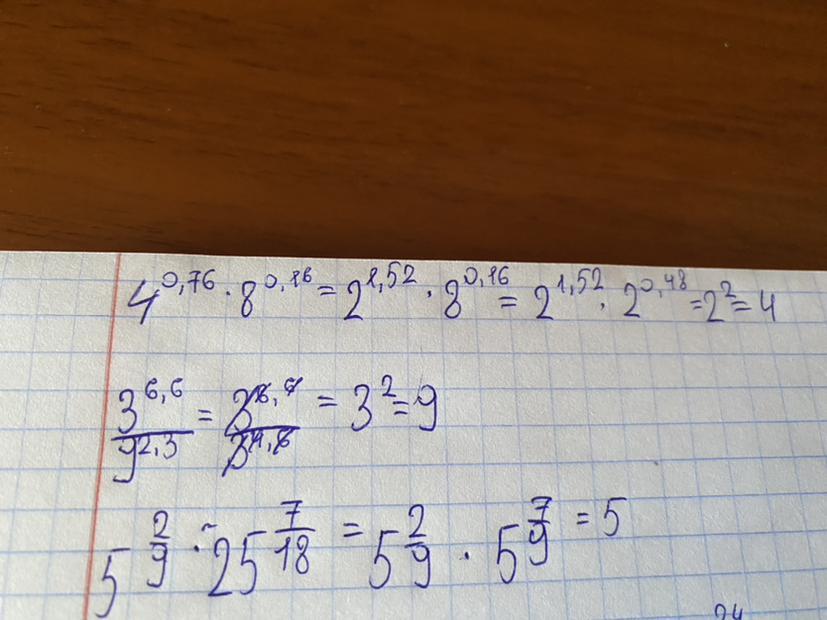 4^0,76 · 8^0,16 = 2^1,52 · 8^0,16 = 2^1,52 · 2^0,48 = 2^2 = 4
3^6,6 / 9^2,3 = 3^6,6 / 3^4,6 = 3^2 = 9
5^2/9 · 25^7/18 = 5^2/9 · 5^7/9 = 5